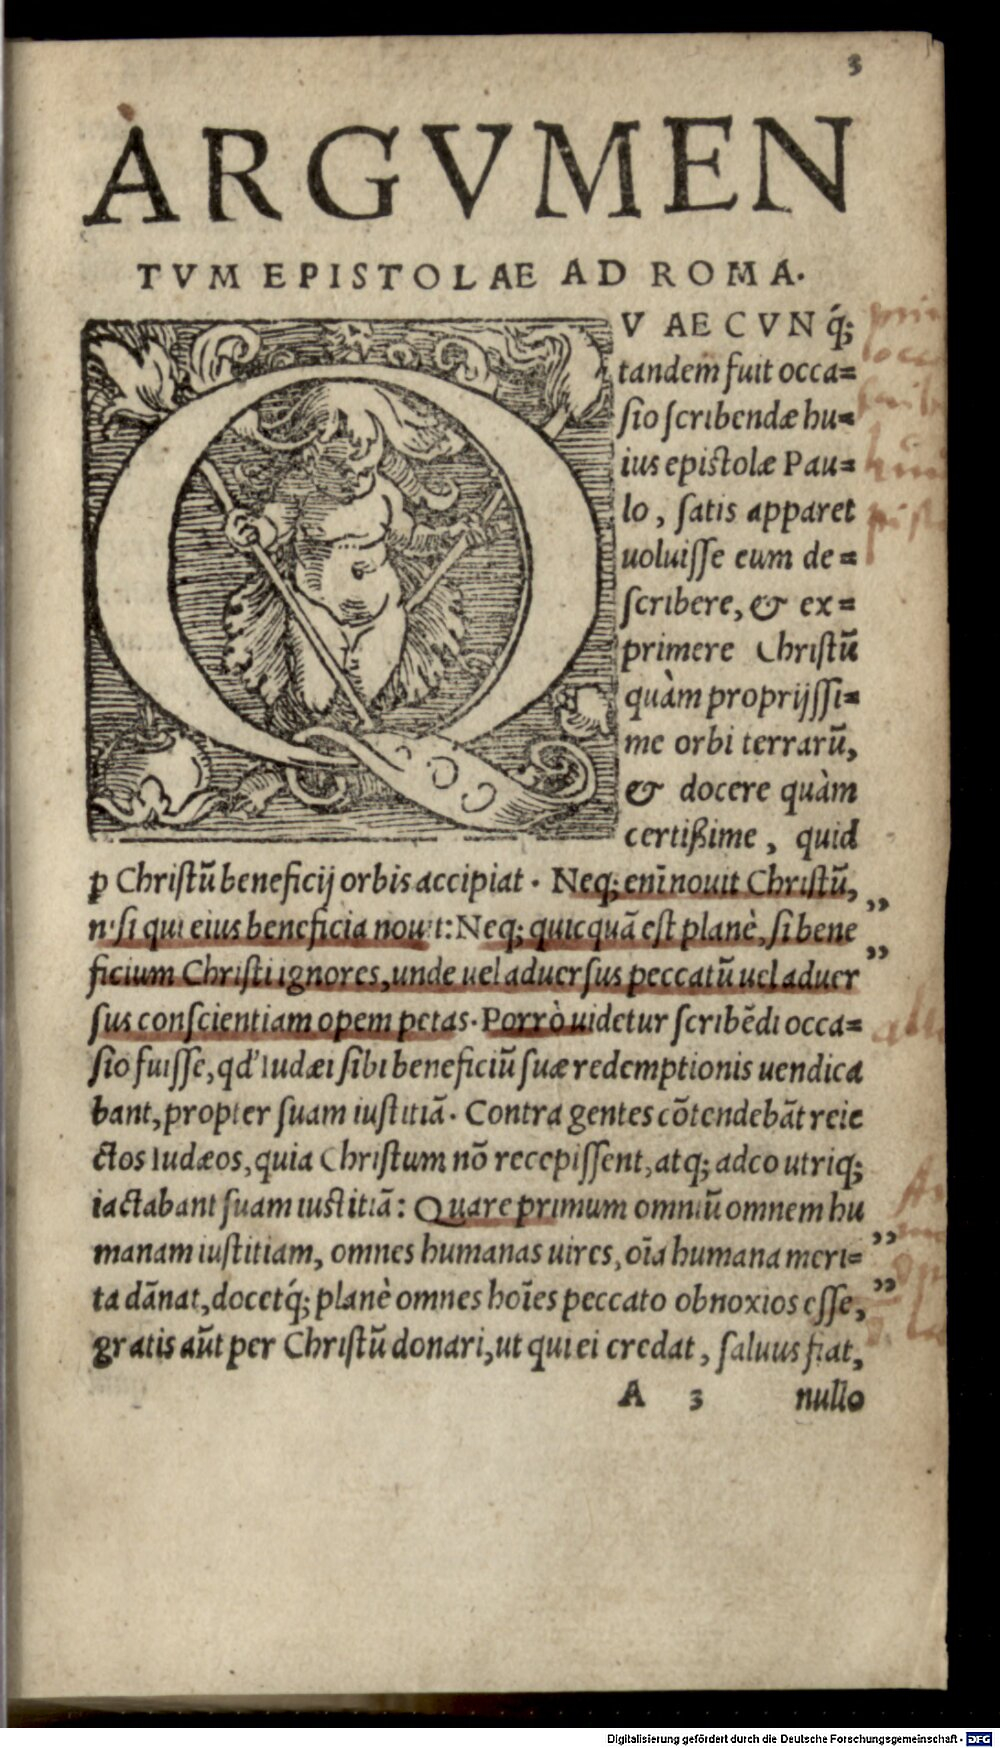 3
ARGVMEN
TVM EPISTOLAE AD ROMA.
QV AE C V N q́;
tandem fuit occa=
sio scribendæ hu=
ius epistolæ Pau=
lo, satis apparet
uoluisse eum de=
scribere, & ex=
primere Christũ
quàm proprijssi=
me orbi terrarũ,
& docere quàm
certißime, quid
ꝑ Christũ beneficij orbis accipiat. Neq; enĩ nouit Christũ, ”
nisi qui eius beneficia nouit: Neq; quicquã est planè, si bene ”
ficium Christi ignores, unde uel aduersus peccatũ uel aduer
sus conscientiam opem petas. Porrò uidetur scribẽdi occa=
sio fuisse, qd' Iudæi sibi beneficiũ suæ redemptionis uendica
bant, propter suam iustitiã. Contra gentes cõtendebãt reie
ctos Iudæos, quia Christum nõ recepissent, atq; adeo utriq;
iactabant suam iustitiã: Quare primum omniũ omnem hu
manam iustitiam, omnes humanas uires, oĩa humana meri= ”
ta dãnat, docetq́; planè omnes hoĩes peccato obnoxios esse, ”
gratis aũt per Christũ donari, ut qui ei credat, saluus fiat,
A 3 nullo
Digitalisierung gefördert durch die Deutsche Forschungsgemeinschaft - DFG